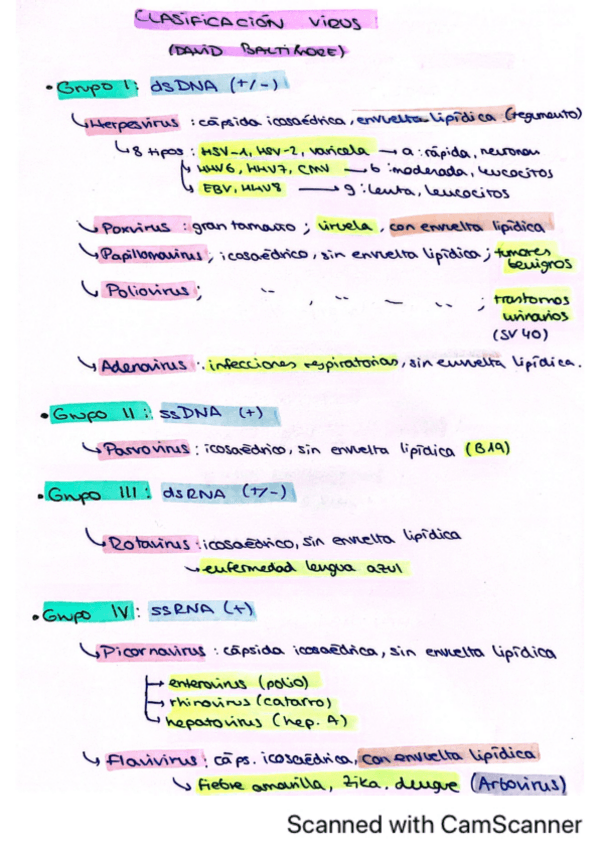 CLASIFICACIÓN VIRUS
(DAVID BALTIMORE)
• Grupo I: dsDNA (+/-)
↳ Herpesvirus: cápsida icosaédrica, envuelta lipídica (tegumento)
↳ 8 tipos: HSV-1, HSV-2, varicela → α: rápida, neuronas
↳ HHV6, HHV7, CMV → b: moderada, leucocitos
↳ EBV, HHV8 → g: lenta, leucocitos
↳ Poxvirus: gran tamaño; viruela, con envuelta lipídica
↳ Papillomavirus; icosaédrico, sin envuelta lipídica; tumores
benignos
↳ Poliovirus; " , " - " ; trastornos
urinarios
(SV40)
↳ Adenovirus: infecciones respiratorias, sin envuelta lipídica.
• Grupo II: ssDNA (+)
↳ Parvovirus: icosaédrico, sin envuelta lipídica (B19)
• Grupo III: dsRNA (+/-)
↳ Rotavirus: icosaédrico, sin envuelta lipídica
↳ enfermedad lengua azul
• Grupo IV: ssRNA (+)
↳ Picornavirus: cápsida icosaédrica, sin envuelta lipídica
→ enterovirus (polio)
→ rhinovirus (catarro)
↳ hepatovirus (hep. A)
↳ Flavivirus: cáps. icosaédrica, con envuelta lipídica
↳ Fiebre amarilla, Zika, dengue (Arbovirus)
Scanned with CamScanner